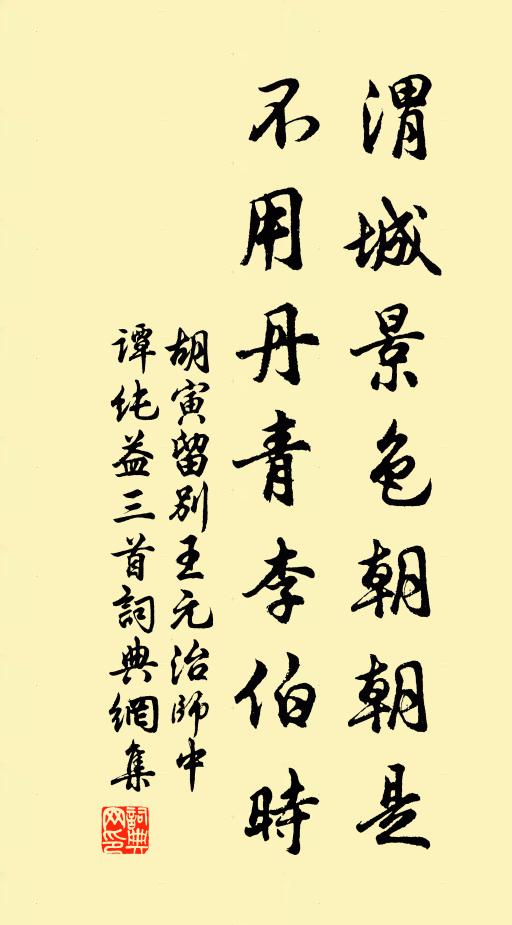 渭城景色朝朝是
不用丹青李伯時
胡寅留別王元治師中
譚純益三首詞典網集
詞典
网印